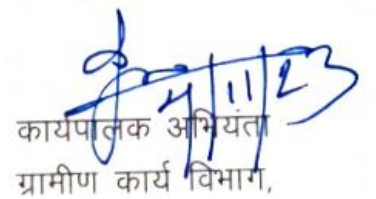 4/11/23
कार्यपालक अभियंता
ग्रामीण कार्य विभाग,